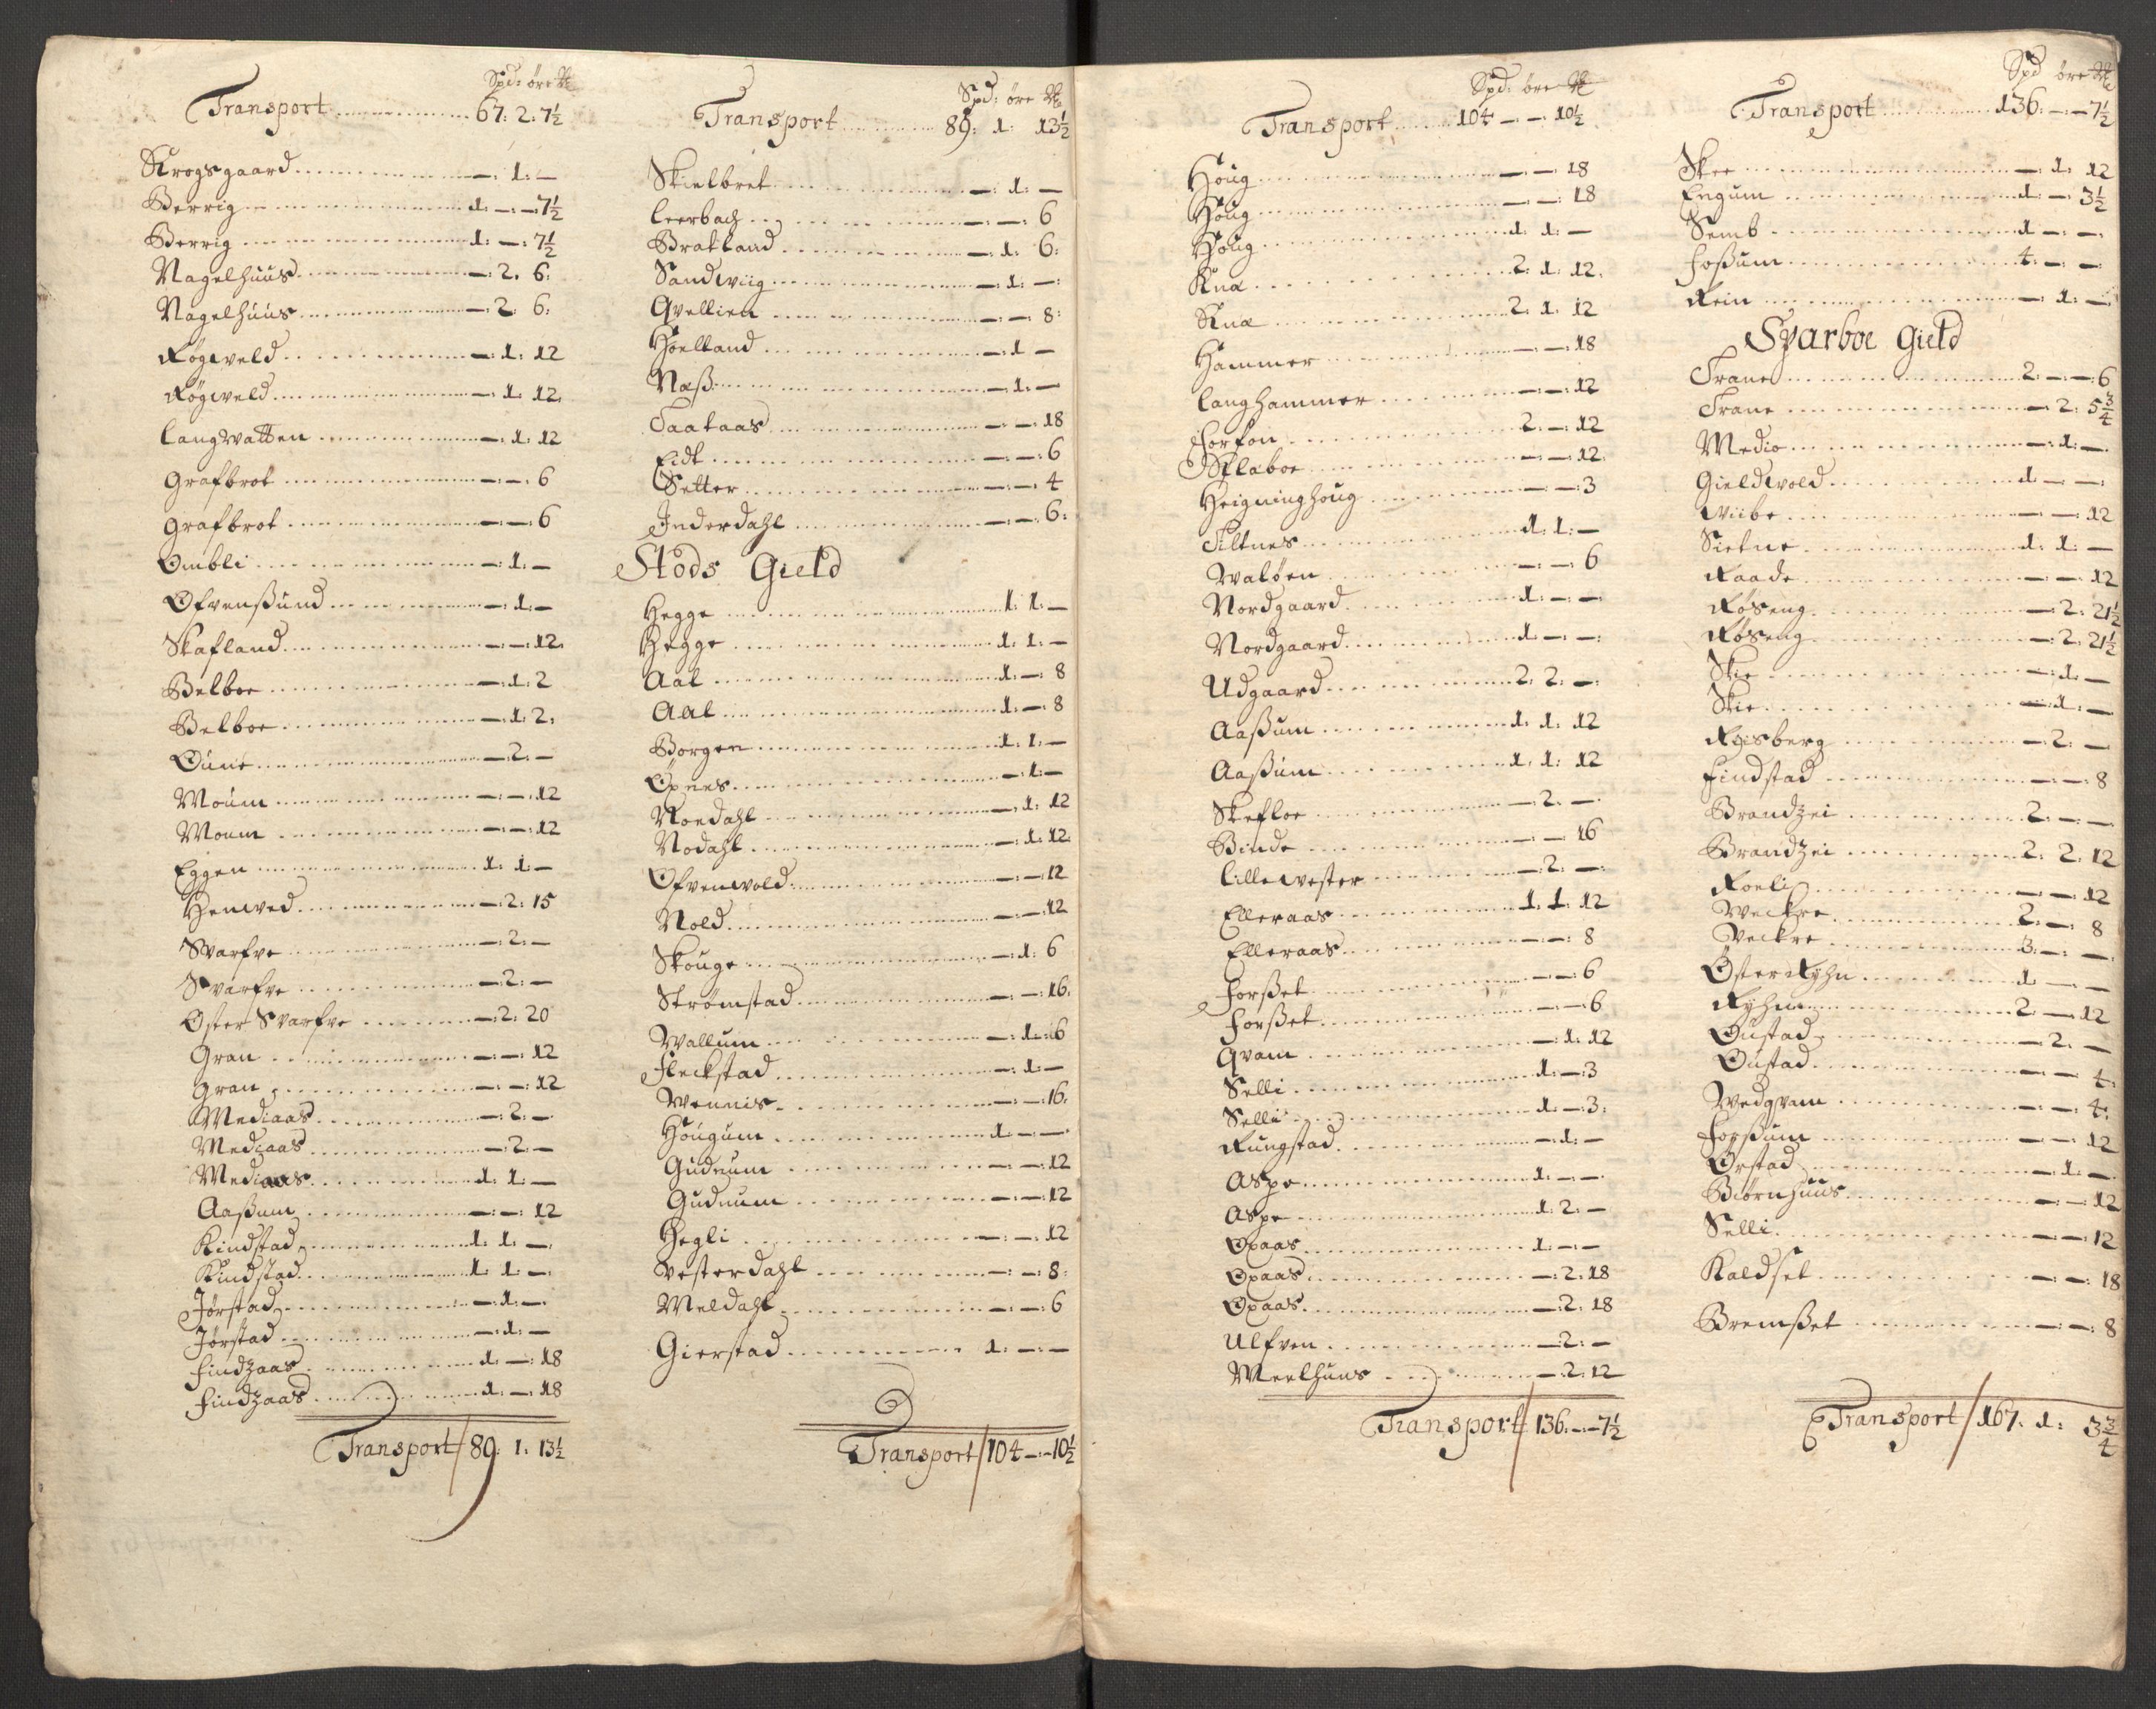 Spd: öre
Transport 67: 2: 7½
Krogsgaard —: 1: —
Berrig 1: —: 7½
Berrig 1: —: 7½
Nagelhuus —: 2: 6:
Nagelhuus —: 2: 6:
Røgweld —: 1: 12
Røgweld —: 1: 12
Langwatten —: 1: 12
Grafbrot —: —: 6
Grafbrot —: —: 6
Ombli —: 1: —
Ofvenßund —: 1: —
Skafland —: —: 12
Belboe —: 1: 2
Belboe —: 1: 2:
Oune —: 2: —
Moum —: —: 12
Moum —: —: 12
Eggen 1: 1: —
Henwed —: 2: 15
Svarfve —: 2: —
Svarfve —: 2: —
Øster Svarfve —: 2: 20
Gran —: —: 12
Gran —: —: 12
Mediaas —: 2: —
Mediaas —: 2: —
Mediaas 1: 1: —
Aaßum —: —: 12
Kindstad 1: 1: —
Kindstad 1: 1: —
Jørstad —: 1: —
Jørstad —: 1: —
Findzaas 1: —: 18
Findzaas 1: —: 18
Transport / 89: 1: 13½
Spd: öre
Transport 89: 1: 13½
Skielbret —: 1: —
Leerbach —: —: 6
Bratland —: 1: 6:
Sandwiig —: 1: —
Qvellien —: —: 8:
Hoelland —: 1: —
Naß —: 1: —
Taataas —: —: 18
Eidt —: —: 6
Setter —: —: 4
Inderdahl —: —: 6:
Stods Gield
Hegge 1: 1: —
Hegge 1: 1: —
Aal 1: —: 8
Aal 1: —: 8
Borgen 1: 1: —
Øpnes —: 1: —
Noedahl —: 1: 12
Nodahl —: 1: 12
Ofvenwold —: —: 12
Nold —: —: 12
Skouge —: 1: 6
Strømstad —: —: 16:
Wallum —: 1: 6
Fleckstad —: 1: —
Wennis —: —: 16:
Hougum 1: —: —
Gudnum —: —: 12
Gudnum —: —: 12
Hegli —: —: 12
Westerdahl —: —: 8:
Meldahl —: —: 6
Gierstad 1: —: —
Transport / 104 —: — 10½
Spd: öre
Transport 104 —: — 10½
Houg —: —: 18
Houg —: —: 18
Houg 1: 1: —
Knæ 2: 1: 12:
Knæ 2: 1: 12
Hammer —: —: 18
Langhammer —: —: 12
Forfon 2: —: 12
Sklaboe —: —: 12
Heigninghoug —: —: 3
Tiltnes 1: 1: —
Waløen —: —: 6
Nordgaard 1: —: —
Nordgaard 1: —: —
Udgaard 2: 2: —
Aaßum 1: 1: 12
Aaßum 1: 1: 12
Skefloe —: 2: —
Binde —: —: 16
Lillewester —: 2: —
Elleraas 1: 1: 12
Elleraas —: —: 8
Forßet —: —: 6
Forßet —: —: 6
Qvam —: 1: 12
Selli 1: —: 3
Selli 1: —: 3:
Rungstad —: 1: —
Aspe 1: —: —
Aspe 1: 2: —
Opaas 1: —: —
Opaas —: 2: 18
Opaas —: 2: 18
Ulfven —: 2: —
Meelhuus —: 2: 12
Transport / 136: —: — 7½
Spd öre
Transport 136: —: — 7½
Skee —: 1: 12
Engum 1: —: 3½
Semb 1: —: —
Foßum 4: —: —
Rein —: 1: —
Sparboe Gield
Trane 2: —: —: 6
Trane —: 2: 5¾
Medio —: 1: —
Gieldwold 1: —: —
Wiibe —: —: 12
Sietne 1: 1: —
Raade —: —: 12
Røseng —: 2: 21½
Røseng —: 2: 21½
Skie —: 1: —
Skie —: 1: —
Røisberg —: 2: —
Findstad —: —: 8
Brandzei 2: —: —
Brandzei 2: 2: 12
Roeli —: —: 12
Weckre 2: —: 8
Veckre 3: —: —
Østerryhn 1: —: —
Ryhn 2: —: 12
Oustad —: 2: —
Oustad —: —: 4:
Wedqvam —: —: 4:
Forßum —: —: 12
Ørstad —: 1: —
Biørnhuus —: —: 12
Selli —: —: 12
Kaldset —: —: 18
Bremßet —: —: 8
Transport / 167: 1: 3¾